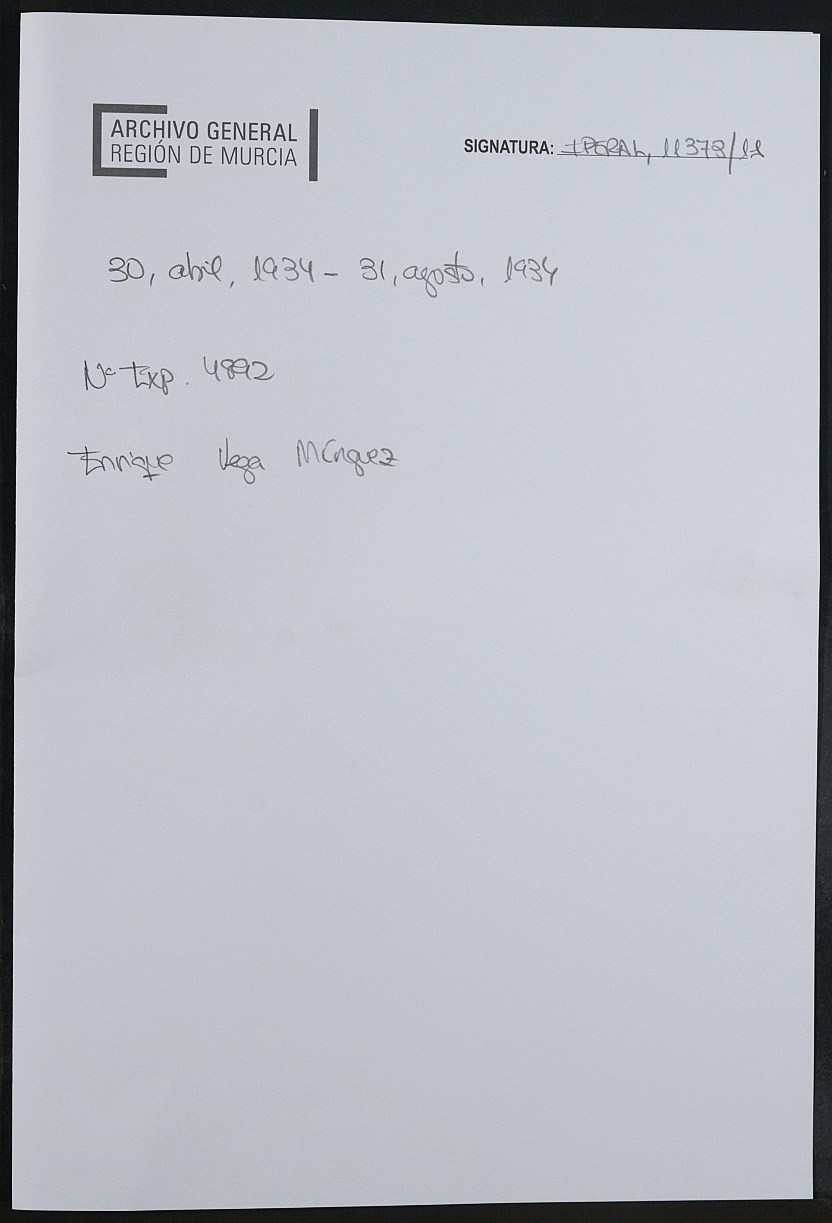 ARCHIVO GENERAL
REGIÓN DE MURCIA
SIGNATURA: IPERAL, 11378/12
30, abril, 1934 - 31, agosto, 1934
Nº Exp. 4892
Enrique Vega Mínguez